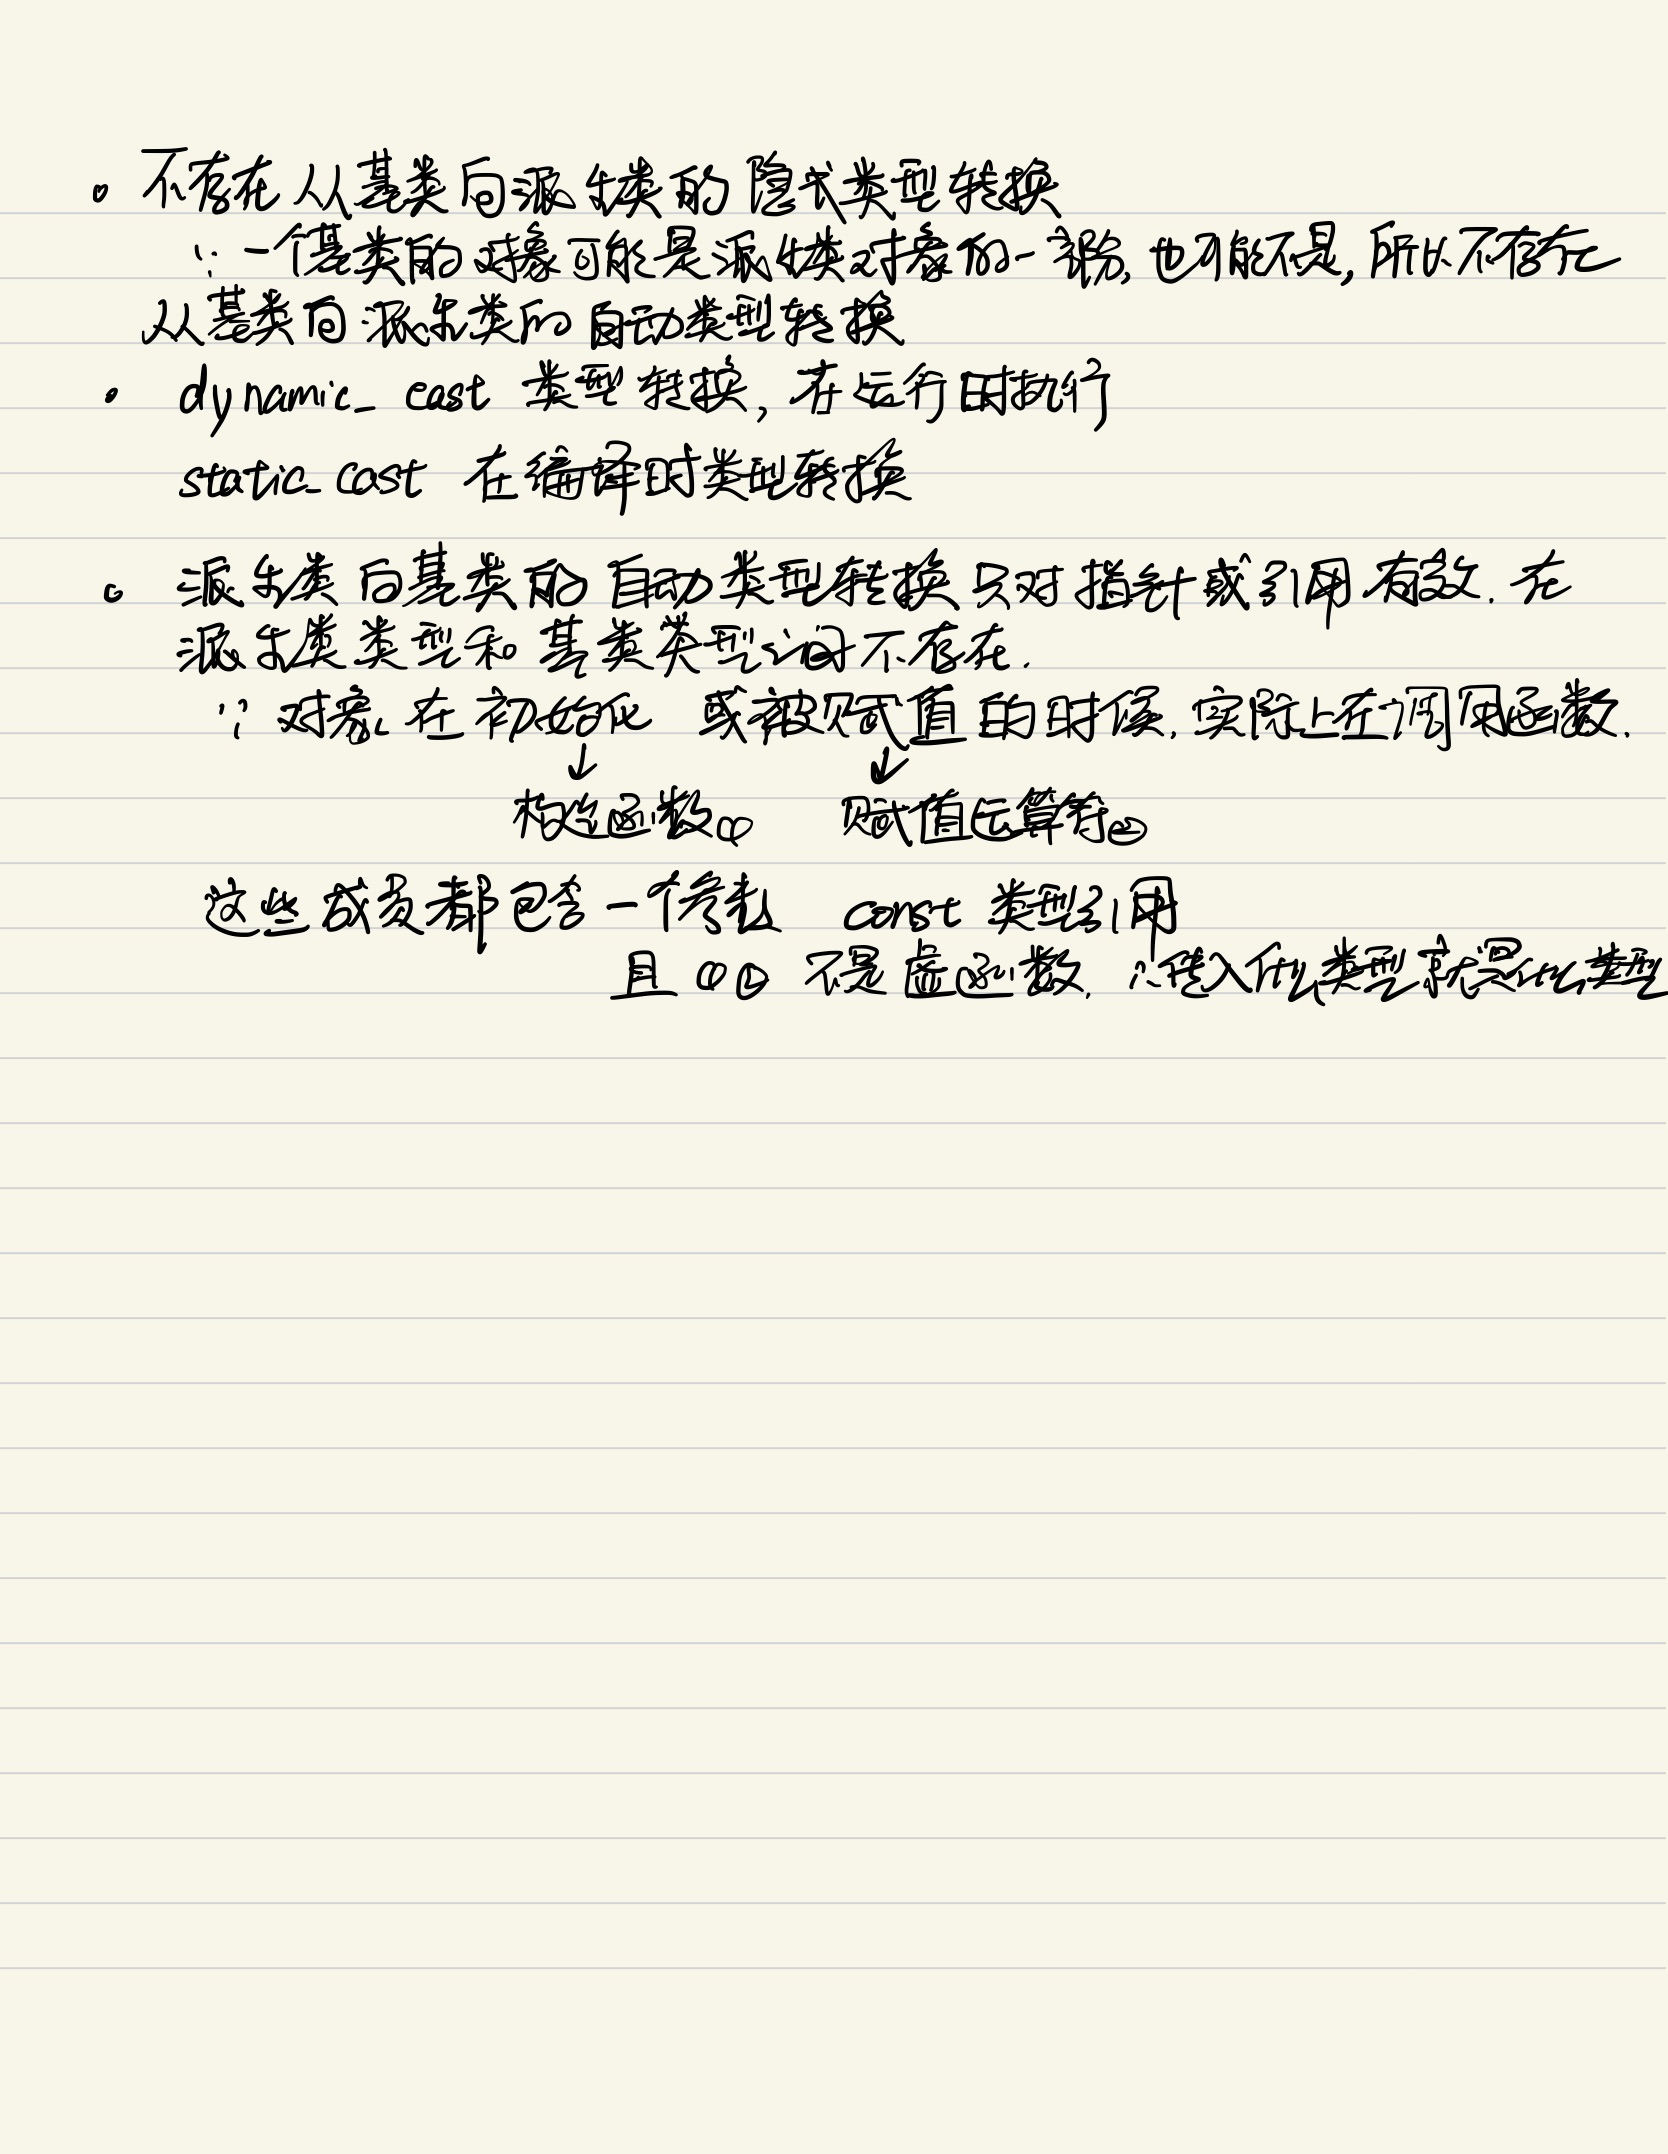 。不存在从基类向派生类的隐式类型转换
∵一个基类的对象可能是派生类对象的一部份,也可能不是,所以不存在
从基类向派生类的自动类型转换
。dynamic_cast 类型转换,在运行时执行
static_cast 在编译时类型转换
。派生类向基类的自动类型转换只对指针或引用有效.在
派生类类型和基类类型之间不存在.
∵对象在初始化 或被赋值的时候.实际上在调用函数.
↓ ↓
构造函数① 赋值运算符②
这些成员都包含一个参数 const 类型引用
且①② 不是虚函数. ∴传入什么类型就是什么类型